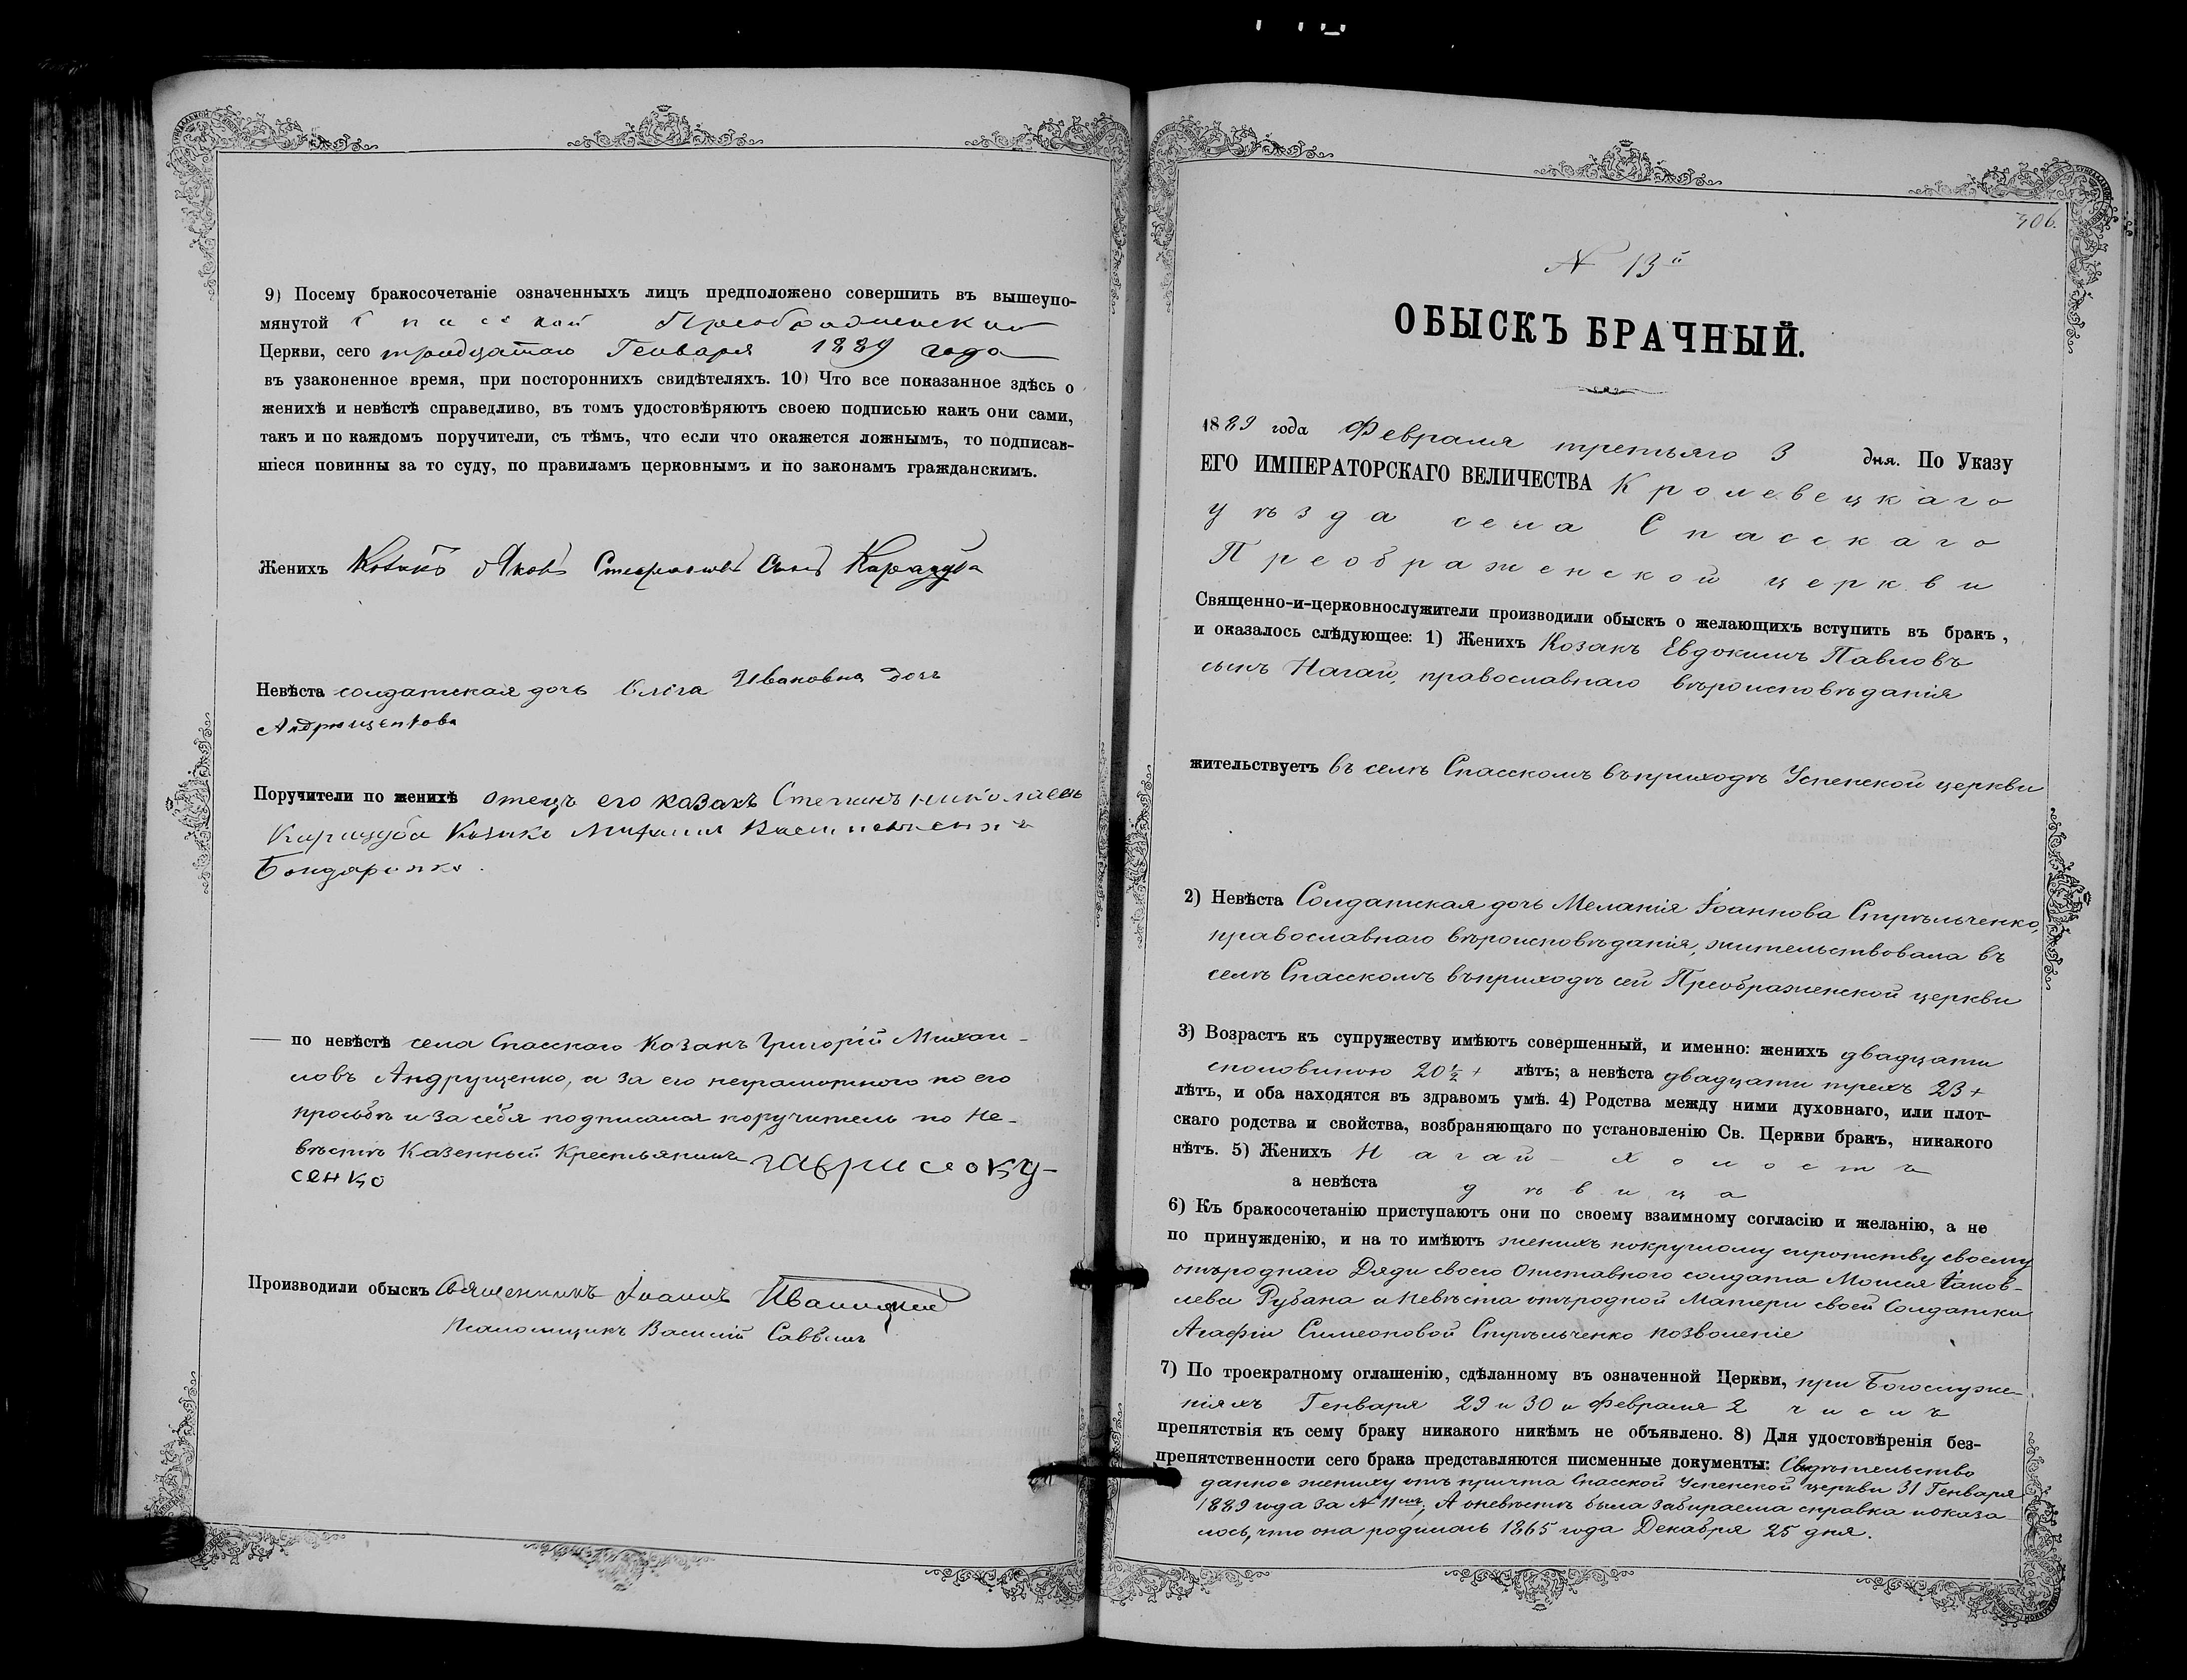 9) Посему бракосочетаніе означенныхъ лицъ предположено совершить въ вышеупо-
мянутой Спасской Преображенской
Церкви, сего тридцатаго Генваря 1889 года
въ узаконенное время, при постороннихъ свидѣтеляхъ. 10) Что все показанное здѣсь о
женихѣ и невѣстѣ справедливо, въ томъ удостовѣряютъ своею подписью какъ они сами,
такъ и по каждомъ поручители, съ тѣмъ, что если что окажется ложнымъ, то подписав-
шіеся повинны за то суду, по правиламъ церковнымъ и по законамъ гражданскимъ.
Женихъ Козакъ Яковъ Стефановъ Сынъ
Невѣста солдатская дочь Ивановна дочь
Андрющенкова
Поручители по женихѣ отецъ его казакъ Степанъ николаевъ
Козакъ Михаилъ
Бондаренко.
— по невѣстѣ села Спасскаго Козакъ Григорій Михаи-
ловъ Андрущенко, а за его неграмотного по его
просьбѣ и за себя подписался поручитель по Не-
вѣстѣ Казенный Крестьянинъ
сенко
Производили обыскъ Священникъ Іоаннъ Иваницкій
Псаломщикъ Василій Саввичъ
306.
N 13й
ОБЫСКЪ БРАЧНЫЙ.
1889 года Февраля третьяго 3 дня. По Указу
ЕГО ИМПЕРАТОРСКАГО ВЕЛИЧЕСТВА Кролевецкаго
уѣзда села Спасскаго
Преображенской церкви
Священно-и-церковнослужители производили обыскъ о желающихъ вступить въ бракъ,
и оказалось слѣдующее: 1) Женихъ Козакъ Евдокимъ Павловъ
сынъ Нагай, православнаго вѣроисповѣданія
жительствуетъ въ селѣ Спасскомъ въ приходѣ Успенской церкви
2) Невѣста Солдатская дочь Меланія Іоаннова Стрѣльченко,
православнаго вѣроисповѣданія, жительствовала въ
селѣ Спасскомъ въ приходѣ сей Преображенской церкви
3) Возрастъ къ супружеству имѣютъ совершенный, и именно: женихъ двадцати
споловиною 20½ + лѣтъ; а невѣста двадцати трехъ 23+
лѣтъ, и оба находятся въ здравомъ умѣ. 4) Родства между ними духовнаго, или плот-
скаго родства и свойства, возбраняющаго по установленію Св. Церкви бракъ, никакого
нѣтъ. 5) Женихъ Нагай — холостъ
а невѣста дѣвица
6) Къ бракосочетанію приступаютъ они по своему взаимному согласію и желанію, а не
по принужденію, и на то имѣютъ женихъ покруглому сиротству своему
отъроднаго Дяди своего Отставного солдата Моисея Іаков-
лева Рубана а Невѣста отъродной Матери своей Солдатки
Агафіи Симеоновой Стрѣльченко позволеніе
7) По троекратному оглашенію, сдѣланному въ означенной Церкви, при Богослуже-
ніяхъ Генваря 29 и 30 и Февраля 2 числъ
препятствія къ сему браку никакого никѣмъ не объявлено. 8) Для удостовѣренія без-
препятственности сего брака представляются писменные документы: Свидѣтельство
данное жениху отъ причта Спасской Успенской церкви 31 Генваря
1889 года за N 11мъ; А оневѣстѣ была забираема справка иоказа-
лось, что она родилась 1865 года Декабря 25 дня.